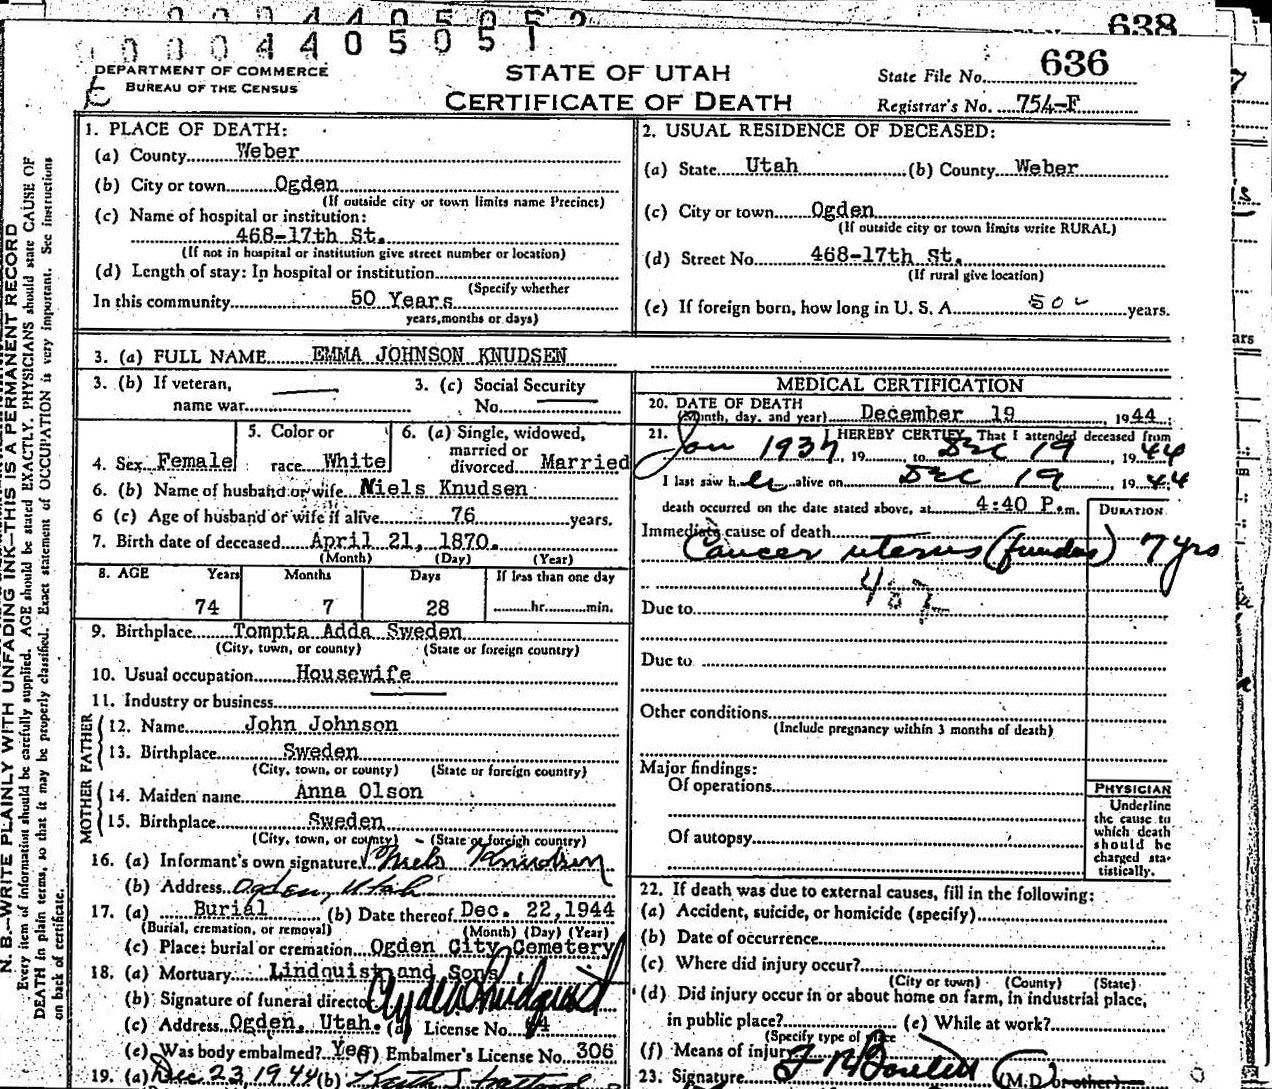 638
0004405051
636
DEPARTMENT OF COMMERCE
BUREAU OF THE CENSUS
STATE OF UTAH
CERTIFICATE OF DEATH
State File No.
Registrar's No. 754-F
N. B.—WRITE PLAINLY WITH UNFADING INK—THIS IS A PERMANENT RECORD
Every item of information should be carefully supplied. AGE should be stated EXACTLY. PHYSICIANS should state CAUSE OF
DEATH in plain terms, so that it may be properly classified. Exact statement of OCCUPATION is very important. See instructions
on back of certificate.
1. PLACE OF DEATH:
(a) County Weber
(b) City or town Ogden
(If outside city or town limits name Precinct)
(c) Name of hospital or institution:
468-17th St.
(If not in hospital or institution give street number or location)
(d) Length of stay: In hospital or institution
(Specify whether
In this community 50 Years
years, months or days)
2. USUAL RESIDENCE OF DECEASED:
(a) State Utah (b) County Weber
(c) City or town Ogden
(If outside city or town limits write RURAL)
(d) Street No. 468-17th St.
(If rural give location)
(e) If foreign born, how long in U. S. A. 50 years.
3. (a) FULL NAME EMMA JOHNSON KNUDSEN
3. (b) If veteran,
name war
3. (c) Social Security
No.
4. Sex Female
5. Color or
race White
6. (a) Single, widowed,
married or
divorced Married
6. (b) Name of husband or wife Niels Knudsen
6 (c) Age of husband or wife if alive 76 years.
7. Birth date of deceased April 21, 1870.
(Month) (Day) (Year)
8. AGE Years Months Days If less than one day
74 7 28 hr. min.
9. Birthplace Tompta Adda Sweden
(City, town, or county) (State or foreign country)
10. Usual occupation Housewife
11. Industry or business
FATHER
12. Name John Johnson
13. Birthplace Sweden
(City, town, or county) (State or foreign country)
MOTHER
14. Maiden name Anna Olson
15. Birthplace Sweden
(City, town, or county) (State or foreign country)
16. (a) Informant's own signature Niels Knudsen
(b) Address Ogden, Utah
17. (a) Burial (b) Date thereof Dec. 22, 1944
(Burial, cremation, or removal) (Month) (Day) (Year)
(c) Place: burial or cremation Ogden City Cemetery
18. (a) Mortuary Lindquist and Sons
(b) Signature of funeral director Clyde Lindquist
(c) Address Ogden, Utah. (d) License No. 84
(e) Was body embalmed? Yes (f) Embalmer's License No. 306
19. (a) Dec 23, 1944 (b)
MEDICAL CERTIFICATION
20. DATE OF DEATH
(Month, day, and year) December 19, 1944
21. I HEREBY CERTIFY, That I attended deceased from
Jan 1937, 19 to Dec 19 1944
I last saw her alive on Dec 19 1944
death occurred on the date stated above, at 4:40 P.m.
DURATION
Immediate cause of death
Cancer uterus (fundus) 7 yrs
Due to
Due to
Other conditions
(Include pregnancy within 3 months of death)
Major findings:
Of operations
Of autopsy
PHYSICIAN
Underline
the cause to
which death
should be
charged sta-
tistically.
22. If death was due to external causes, fill in the following:
(a) Accident, suicide, or homicide (specify)
(b) Date of occurrence
(c) Where did injury occur?
(City or town) (County) (State)
(d) Did injury occur in or about home on farm, in industrial place,
in public place? (e) While at work?
(Specify type of place
(f) Means of injury
23. Signature (M.D. or other)